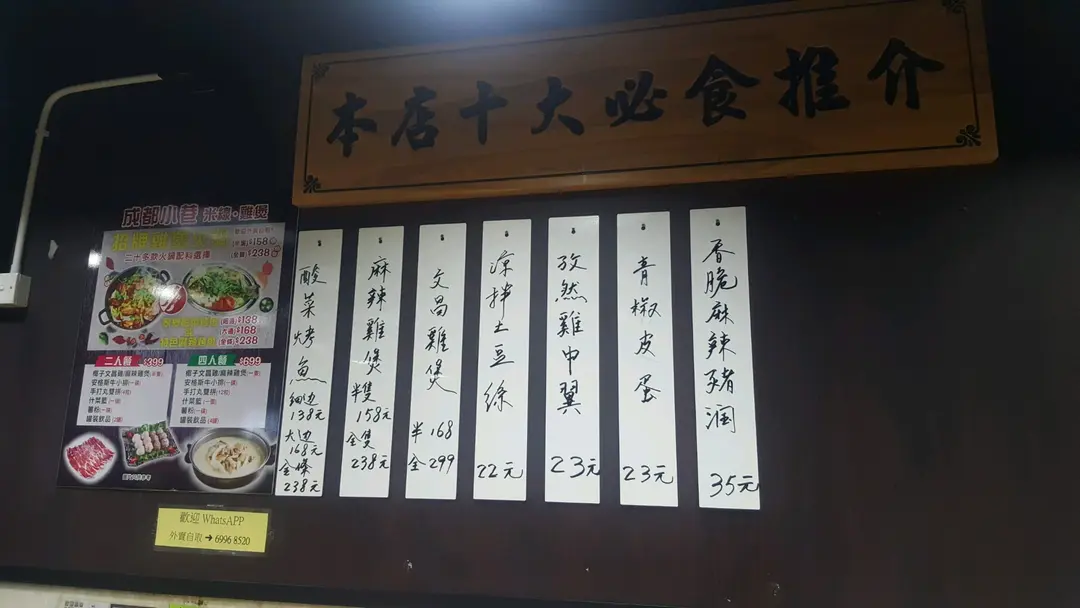 本店十大必食推介
成都小巷 米線·雞煲
二十多款火鍋配料選擇
$158
$238
$138
$168
$238
二人餐 $399
椰子文昌雞/麻辣雞煲
安格斯牛小排
手打丸雙拼
什菜籃
薯粉
罐裝飲品
四人餐 $699
椰子文昌雞/麻辣雞煲
安格斯牛小排
手打丸雙拼
什菜籃
薯粉
罐裝飲品
歡迎 WhatsAPP
外賣自取 ➔ 6996 8520
酸菜烤魚
细边
138元
大边
168元
全條
238元
麻辣雞煲
半隻
158元
全隻
238元
文昌雞煲
半 168
全 299
涼拌土豆絲
22元
孜然雞中翼
23元
青椒皮蛋
23元
香脆麻辣豬潤
35元